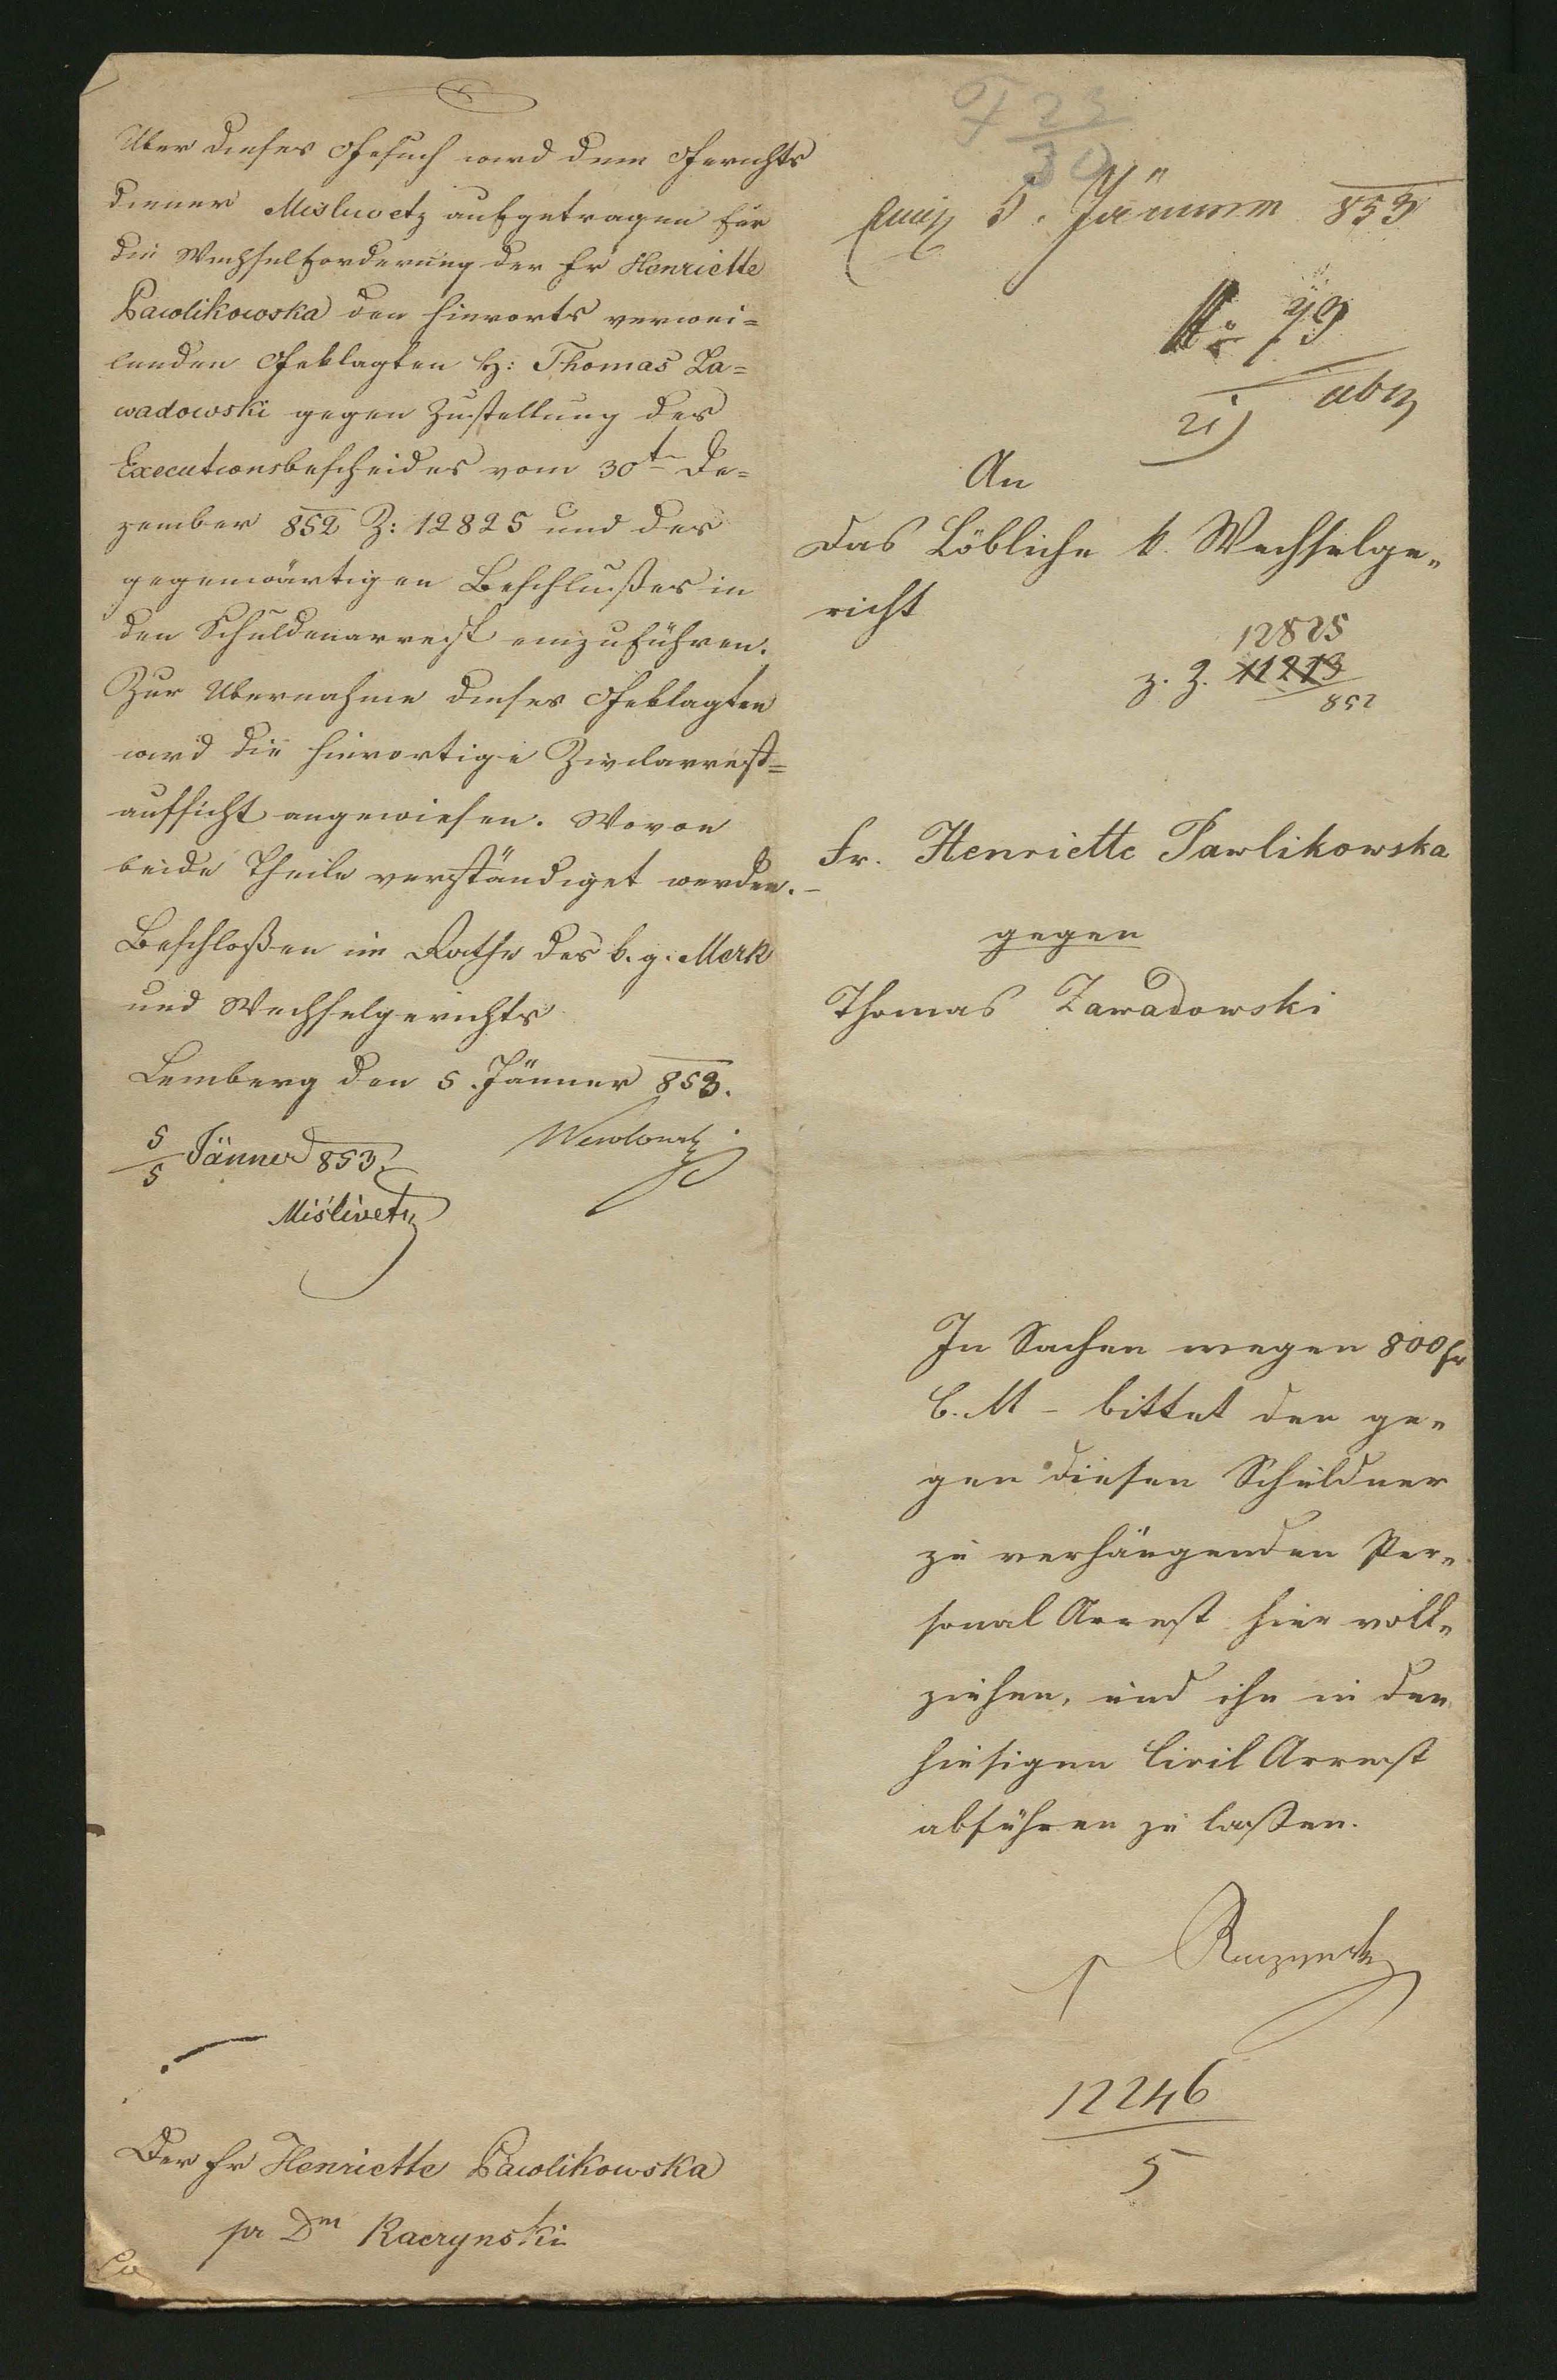 Uber dieses Gesuch wird dem Gerichts
diener Misliwetz aufgetragen für
die Wechselforderung der Fr Henriette
Pawlikowska den hierorts verwei=
lenden Geklagten H: Thomas Za=
wadowski gegen Zustellung des
Executionsbescheides vom 30t De=
zember 852 Z: 12825 und des
gegenwärtigen Beschlußes in
den Schuldenarrest einzuführen.
Zur Übernahme dieses Geklagten
wird die hierortige Zivilarrest=
aufsicht angewiesen. Wovon
beide Theile verständiget werden.
Beschloßen im Rathe des k. g. Merk
und Wechselgerichts
Lemberg den 5. Jänner 853.
5/5 Jänner 853
Mislivetz
Der Fr Henriette Pawlikowska
pr Dm Raczynski
F 23/30
5. Jänner 853
No 79
An
das Löbliche k. Wechselge„
richt
12825
z. Z. 11213
852
Fr. Henriette Pawlikowska
gegen
Thomas Zawadowski
In Sachen wegen 800 fr
C. M – bittet den ge„
gen diesen Schuldner
zu verhängenden Per„
sonal Arrest hier voll„
ziehen, und ihn in den
hiesigen Civil Arrest
abführen zu laßen.
Raczynski
12246
5